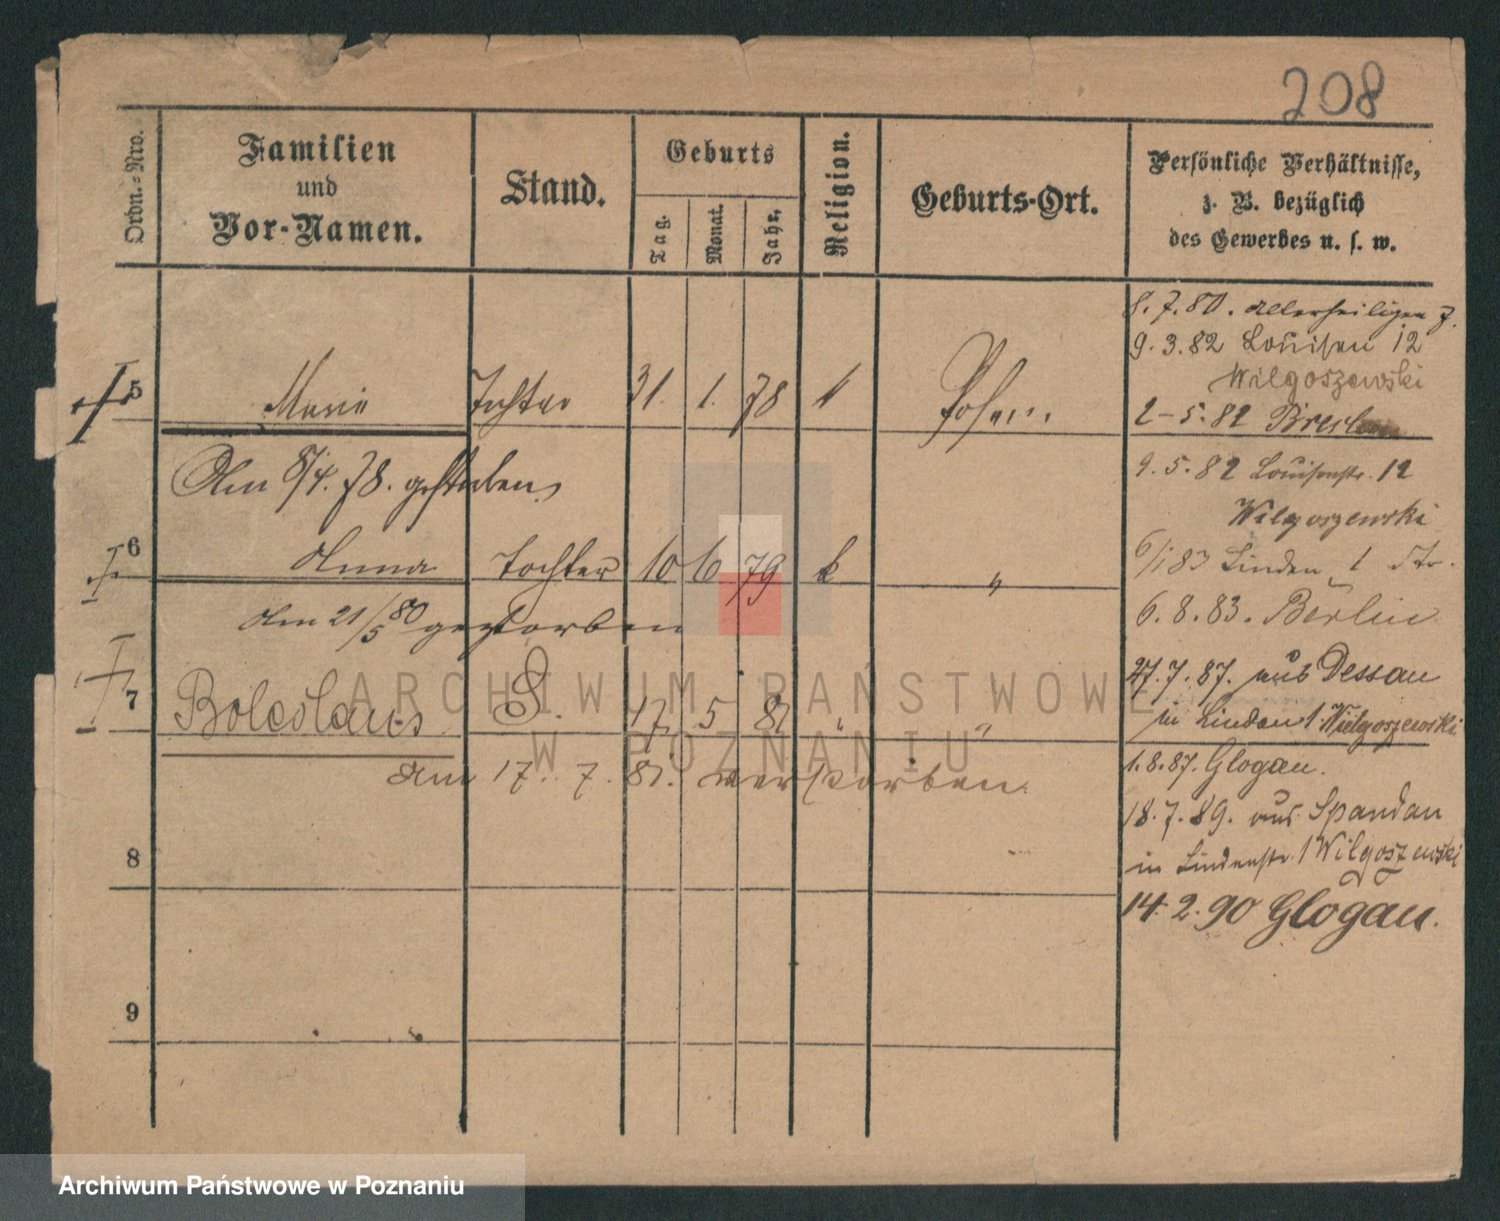 208
Ordn.-Nro.
Familien
und
Vor-Namen.
Stand.
Geburts
Tag.
Monat.
Jahr.
Religion.
Geburts-Ort.
Persönliche Verhältnisse,
z. B. bezüglich
des Gewerbes u. s. w.
5 Marie Tochter 31. 1. 78 k Posen
Am 8/4. 78. gestorben
6 Anna Tochter 10 6 79 k "
Am 21/5 80 gestorben
7 Boleslaus S. 17 5 82 " "
Am 17. 7. 82. verstorben.
8
9
8.7.80. Allerheiligen 7.
9.3.82 Louisen 12
Wilgoszewski
2-5.82 Breslau
9.5.82 Louisenstr. 12
Wilgoszewski
6/1 83 Linden 1 Str.
6.8.83. Berlin
27.7.87. aus Dessau
in Linden 1 Wilgoszewski
1.8.87. Glogau.
18.7.89. aus Spandau
in Lindenstr. 1 Wilgoszewski
14.2.90 Glogau.
ARCHIWUM PAŃSTWOWE
W POZNANIU
Archiwum Państwowe w Poznaniu